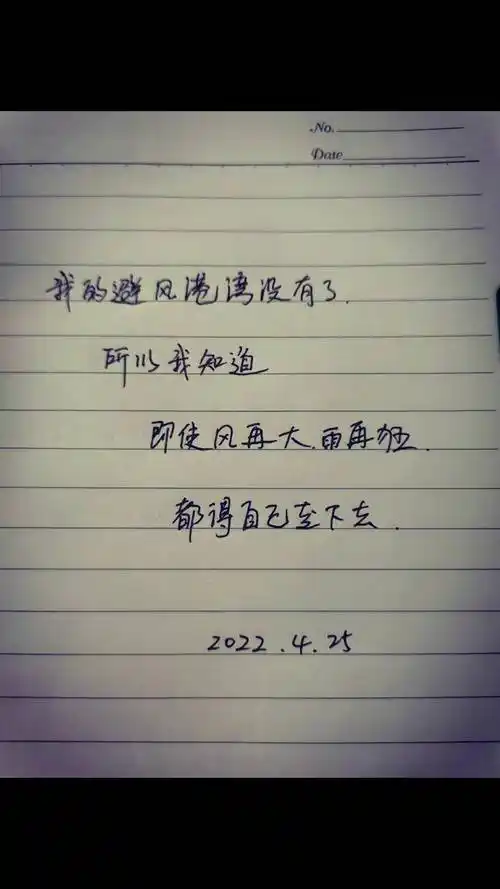 No.
Date
我的避风港湾没有了.
所以我知道
即使风再大.雨再狂.
都得自己走下去.
2022.4.25